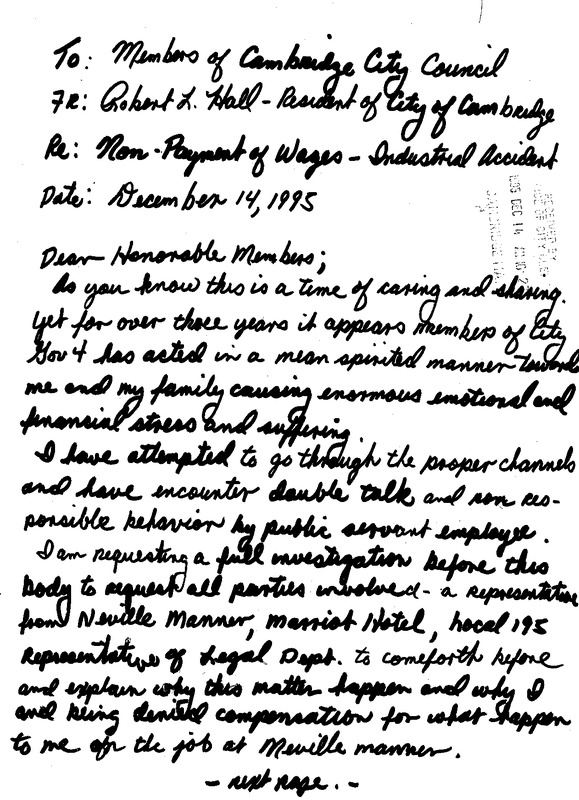 To: Members of Cambridge City Council
FR: Robert L. Hall - Resident of City of Cambridge
Re: Non-Payment of Wages - Industrial Accident
Date: December 14, 1995
RECEIVED BY
1995 DEC 14
CAMBRIDGE
Dear Honorable Members;
As you know this is a time of caring and sharing.
Yet for over three years it appears members of City
Gov't has acted in a mean spirited manner towards
me and my family causing enormous emotional and
financial stress and suffering.
I have attempted to go through the proper channels
and have encounter double talk and non res-
ponsible behavior by public servant employee.
I am requesting a full investigation before this
body to request all parties involved - a representative
from Neville Manner, Marriot Hotel, Local 195
Representative of Legal Dept. to comeforth before
and explain why this matter happen and why I
and being denied compensation for what happen
to me on the job at Neville manner.
- next page. -